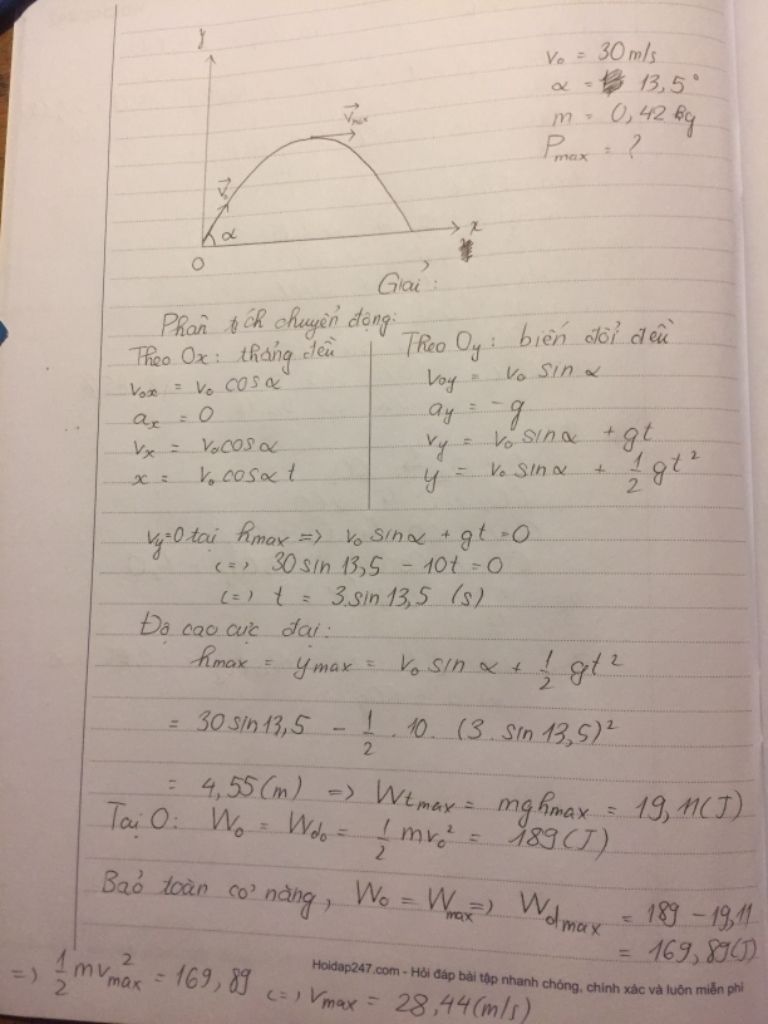 y
v₀ = 30 m/s
α = 13,5°
m = 0,42 kg
Pmax = ?
v⃗max
v⃗₀
α
x
O
Giải:
Phân tích chuyển động:
Theo Ox: thẳng đều
v₀ₓ = v₀ cosα
aₓ = 0
vₓ = v₀cosα
x = v₀ cosα t
Theo Oy: biến đổi đều
v₀y = v₀ sin α
ay = -g
vy = v₀ sinα + gt
y = v₀ sinα + 1/2 gt²
vy=0 tại hmax => v₀ sinα + gt =0
(=) 30 sin 13,5 - 10t =0
(=) t = 3.sin 13,5 (s)
Độ cao cực đại:
hmax = ymax = v₀ sin α + 1/2 gt²
= 30 sin 13,5 - 1/2 . 10. (3. sin 13,5)²
= 4,55(m) => Wtmax = mghmax = 19,11(J)
Tại O: W₀ = Wđ₀ = 1/2 mv₀² = 189(J)
Bảo toàn cơ năng, W₀ = Wmax => Wđmax = 189 - 19,11
= 169,89(J)
=> 1/2 mv²max = 169,89 (=) vmax = 28,44(m/s)
Hoidap247.com - Hỏi đáp bài tập nhanh chóng, chính xác và luôn miễn phí